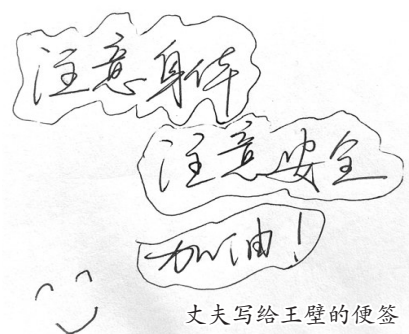 注意身体
注意安全
加油！
丈夫写给王壁的便签